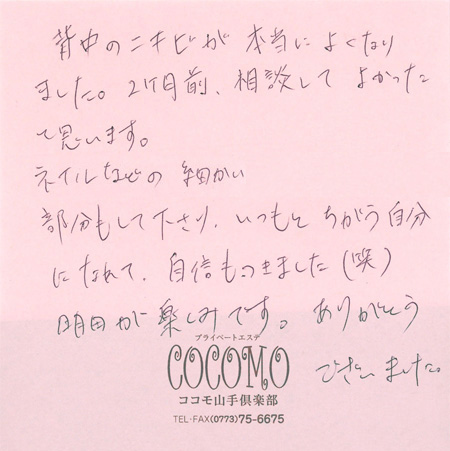 背中のニキビが 本当に よくなり
ました。2ケ月前、相談して よかった
と思います。
ネイルなどの 細かい
部分もして下さり、いつもと ちがう自分
になれて、自信もつきました(笑)
明日が楽しみです。ありがとう
ございました。
プライベートエステ
COCOMO
ココモ山手倶楽部
TEL・FAX(0773)75-6675